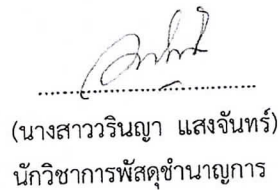 (นางสาววรินญา แสงจันทร์)
นักวิชาการพัสดุชำนาญการ